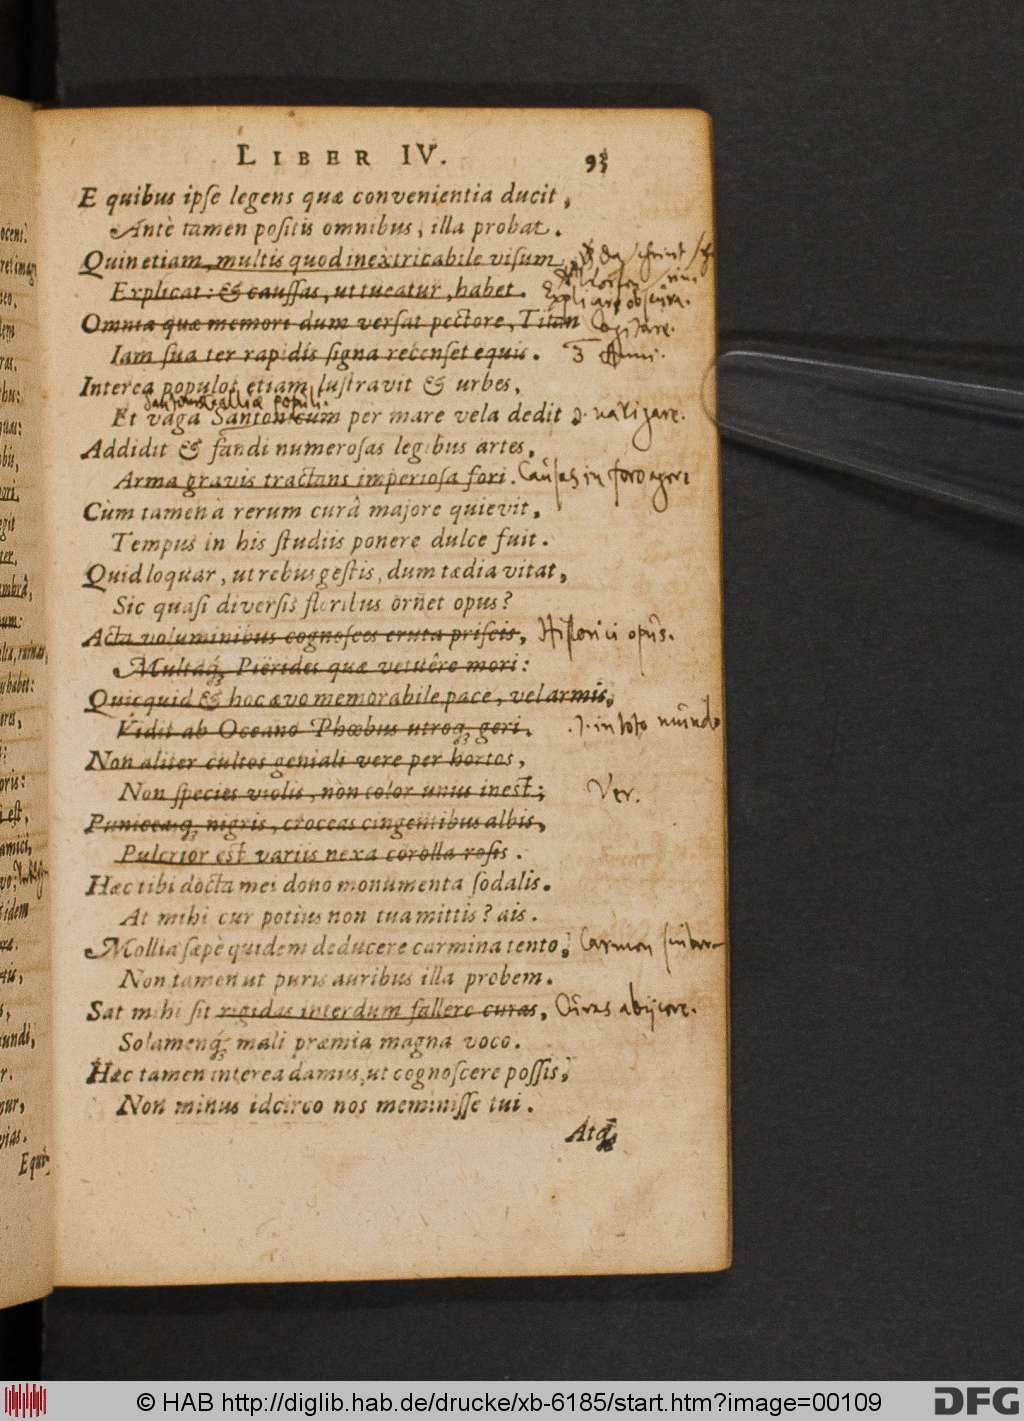 LIBER IV. 93
E quibus ipse legens quæ convenientia ducit,
Antè tamen positis omnibus, illa probat.
Quin etiam, multis quod inextricabile visum,
Explicat: & caussas, ut tueatur, habet. Explicare obscura.
Omnia quæ memori dum versat pectore, Titan Cogitare.
Iam sua ter rapidis signa recenset equis. 3 Anni.
Interea populos etiam lustravit & urbes,
Galliæ populi.
Et vaga Santonicum per mare vela dedit navigare.
Addidit & fandi numerosas legibus artes,
Arma gravis tractans imperiosa fori. Causas in foro agere
Cùm tamen à rerum curâ majore quievit,
Tempus in his studiis ponere dulce fuit.
Quid loquar, ut rebus gestis, dum tædia vitat,
Sic quasi diversis floribus ornet opus?
Acta voluminibus cognosces eruta priscis, Historici opus.
Multaq; Piërides quæ vetuêre mori:
Quicquid & hoc ævo memorabile pace, vel armis,
Vidit ab Oceano Phœbus utroq; geri. .i. in toto mundo
Non aliter cultos geniali vere per hortos,
Non species violis, nòn color unius inest; Ver.
Puniceaq; nigris, croceas cingentibus albis,
Pulcrior est variis nexa corolla rosis.
Hæc tibi docta mei dono monumenta sodalis.
At mihi cur potius non tua mittis? ais.
Mollia sæpè quidem deducere carmina tento; Carmen
Non tamen ut puris auribus illa probem.
Sat mihi sit rigidas interdum fallere curas, Curas abijcere.
Solamenq; mali præmia magna voco.
Hæc tamen interea damus, ut cognoscere possis,
Non minus idcirco nos meminisse tui.
Atq;
© HAB http://diglib.hab.de/drucke/xb-6185/start.htm?image=00109
DFG